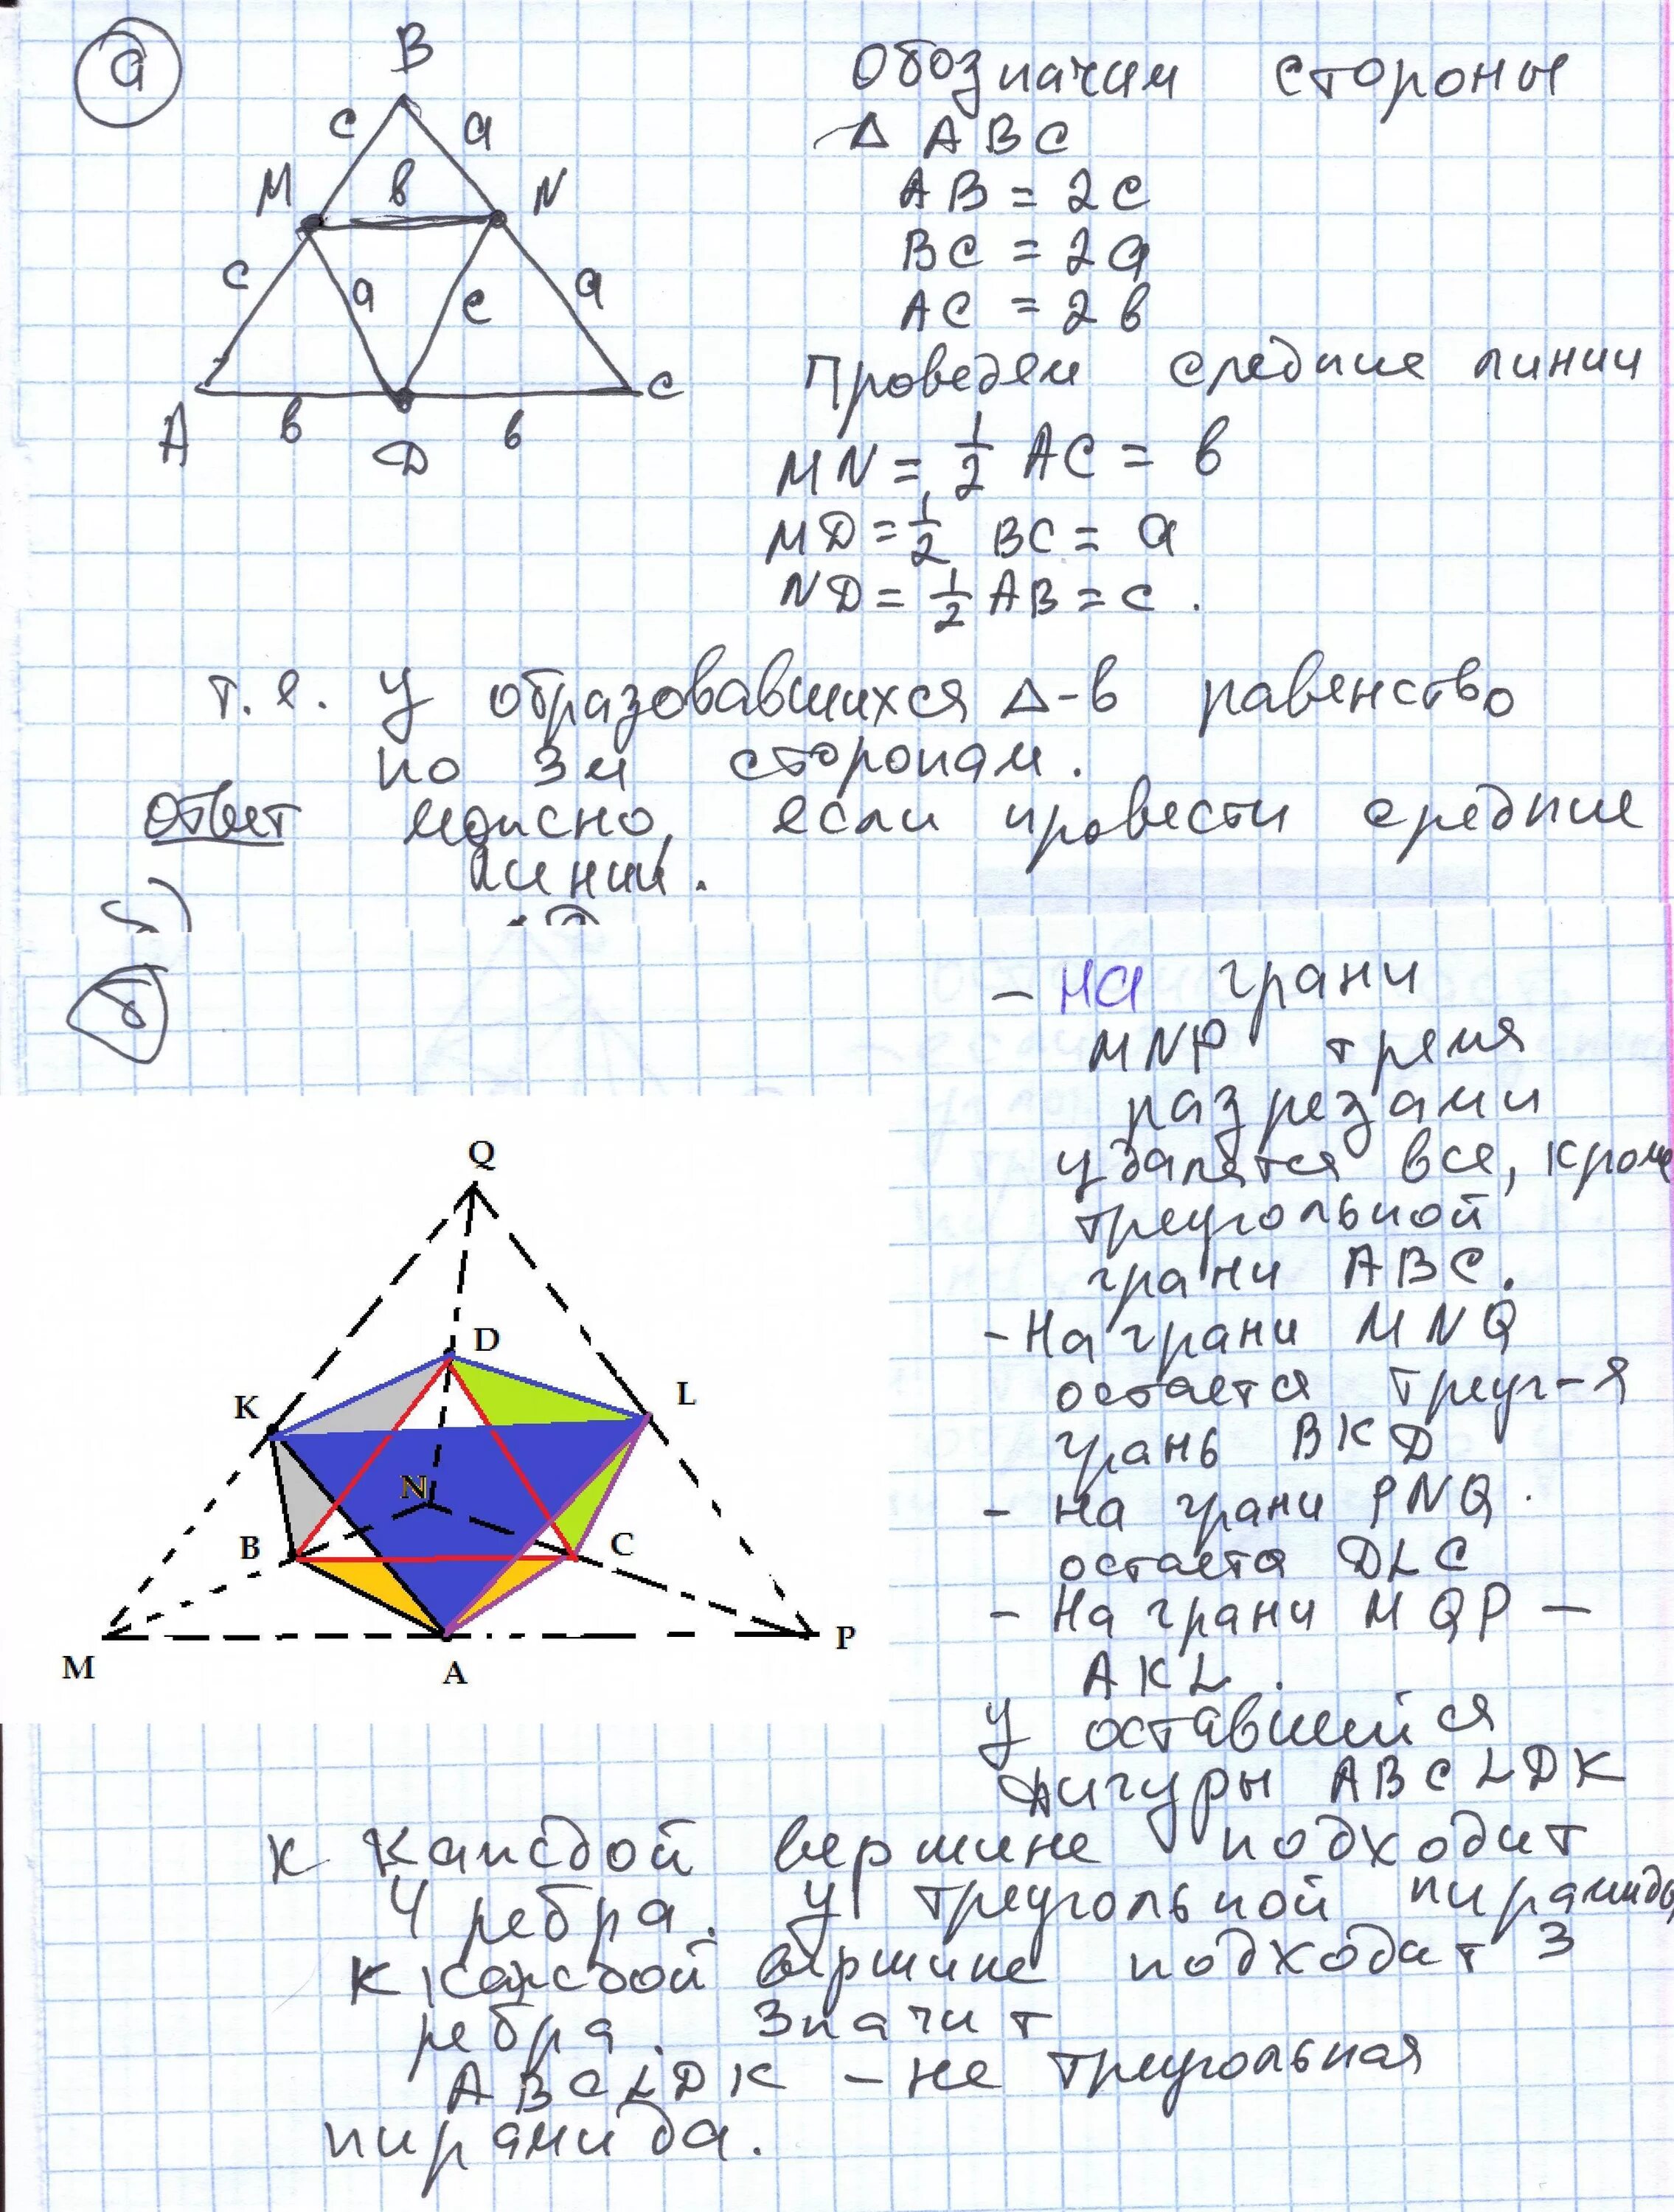 а
B
c a
M в N
c a c a
A в D в C
Обозначим стороны
Δ ABC
AB = 2c
BC = 2a
AC = 2в
Проведем средние линии
MN = 1/2 AC = в
MD = 1/2 BC = a
ND = 1/2 AB = c.
т.е. у образовавшихся Δ-в равенство
по 3м сторонам.
Ответ можно, если провести средние
линии.
б
- на грани
MNP тремя
разрезами
удалятся все, кроме
треугольной
грани ABC.
- На грани MNQ
остается треуг-я
грань BKD
- на грани PNQ.
остается DLC
- На грани MQP -
AKL.
Q
D
K
L
N
B
C
M
A
P
У оставшейся
фигуры ABCLDK
к каждой вершине подходит
4 ребра. У треугольной пирамиды
к каждой вершине подходит 3
ребра. Значит
ABCLDK - не треугольная
пирамида.